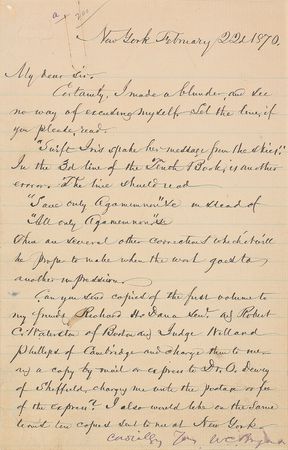 New York February 22d 1870.
My dear Sir.
Certainly, I made a blunder and see
no way of excusing myself. Let the line, if
you please read.
"Swift Iris spake her message from the skies."
In the 3d line of the Tenth Book, is another
error. The line should read
"Save only Agamemnon" &c instead of
"All only Agamemnon" &c
There are several other corrections which it will
be proper to make when the work goes to
another impression.
Can you send copies of the first volume to
my friends Richard H. Dana Senr. and Robert
C. Waterston of Boston and Judge Willard
Phillips of Cambridge and charge them to me—
and a copy by mail or express to Dr. O. Dewey
of Sheffield, charging me with the postage or fee
of the express? I also would like on the same
terms ten copies sent to me at New York.
Cordially Yours W C Bryant